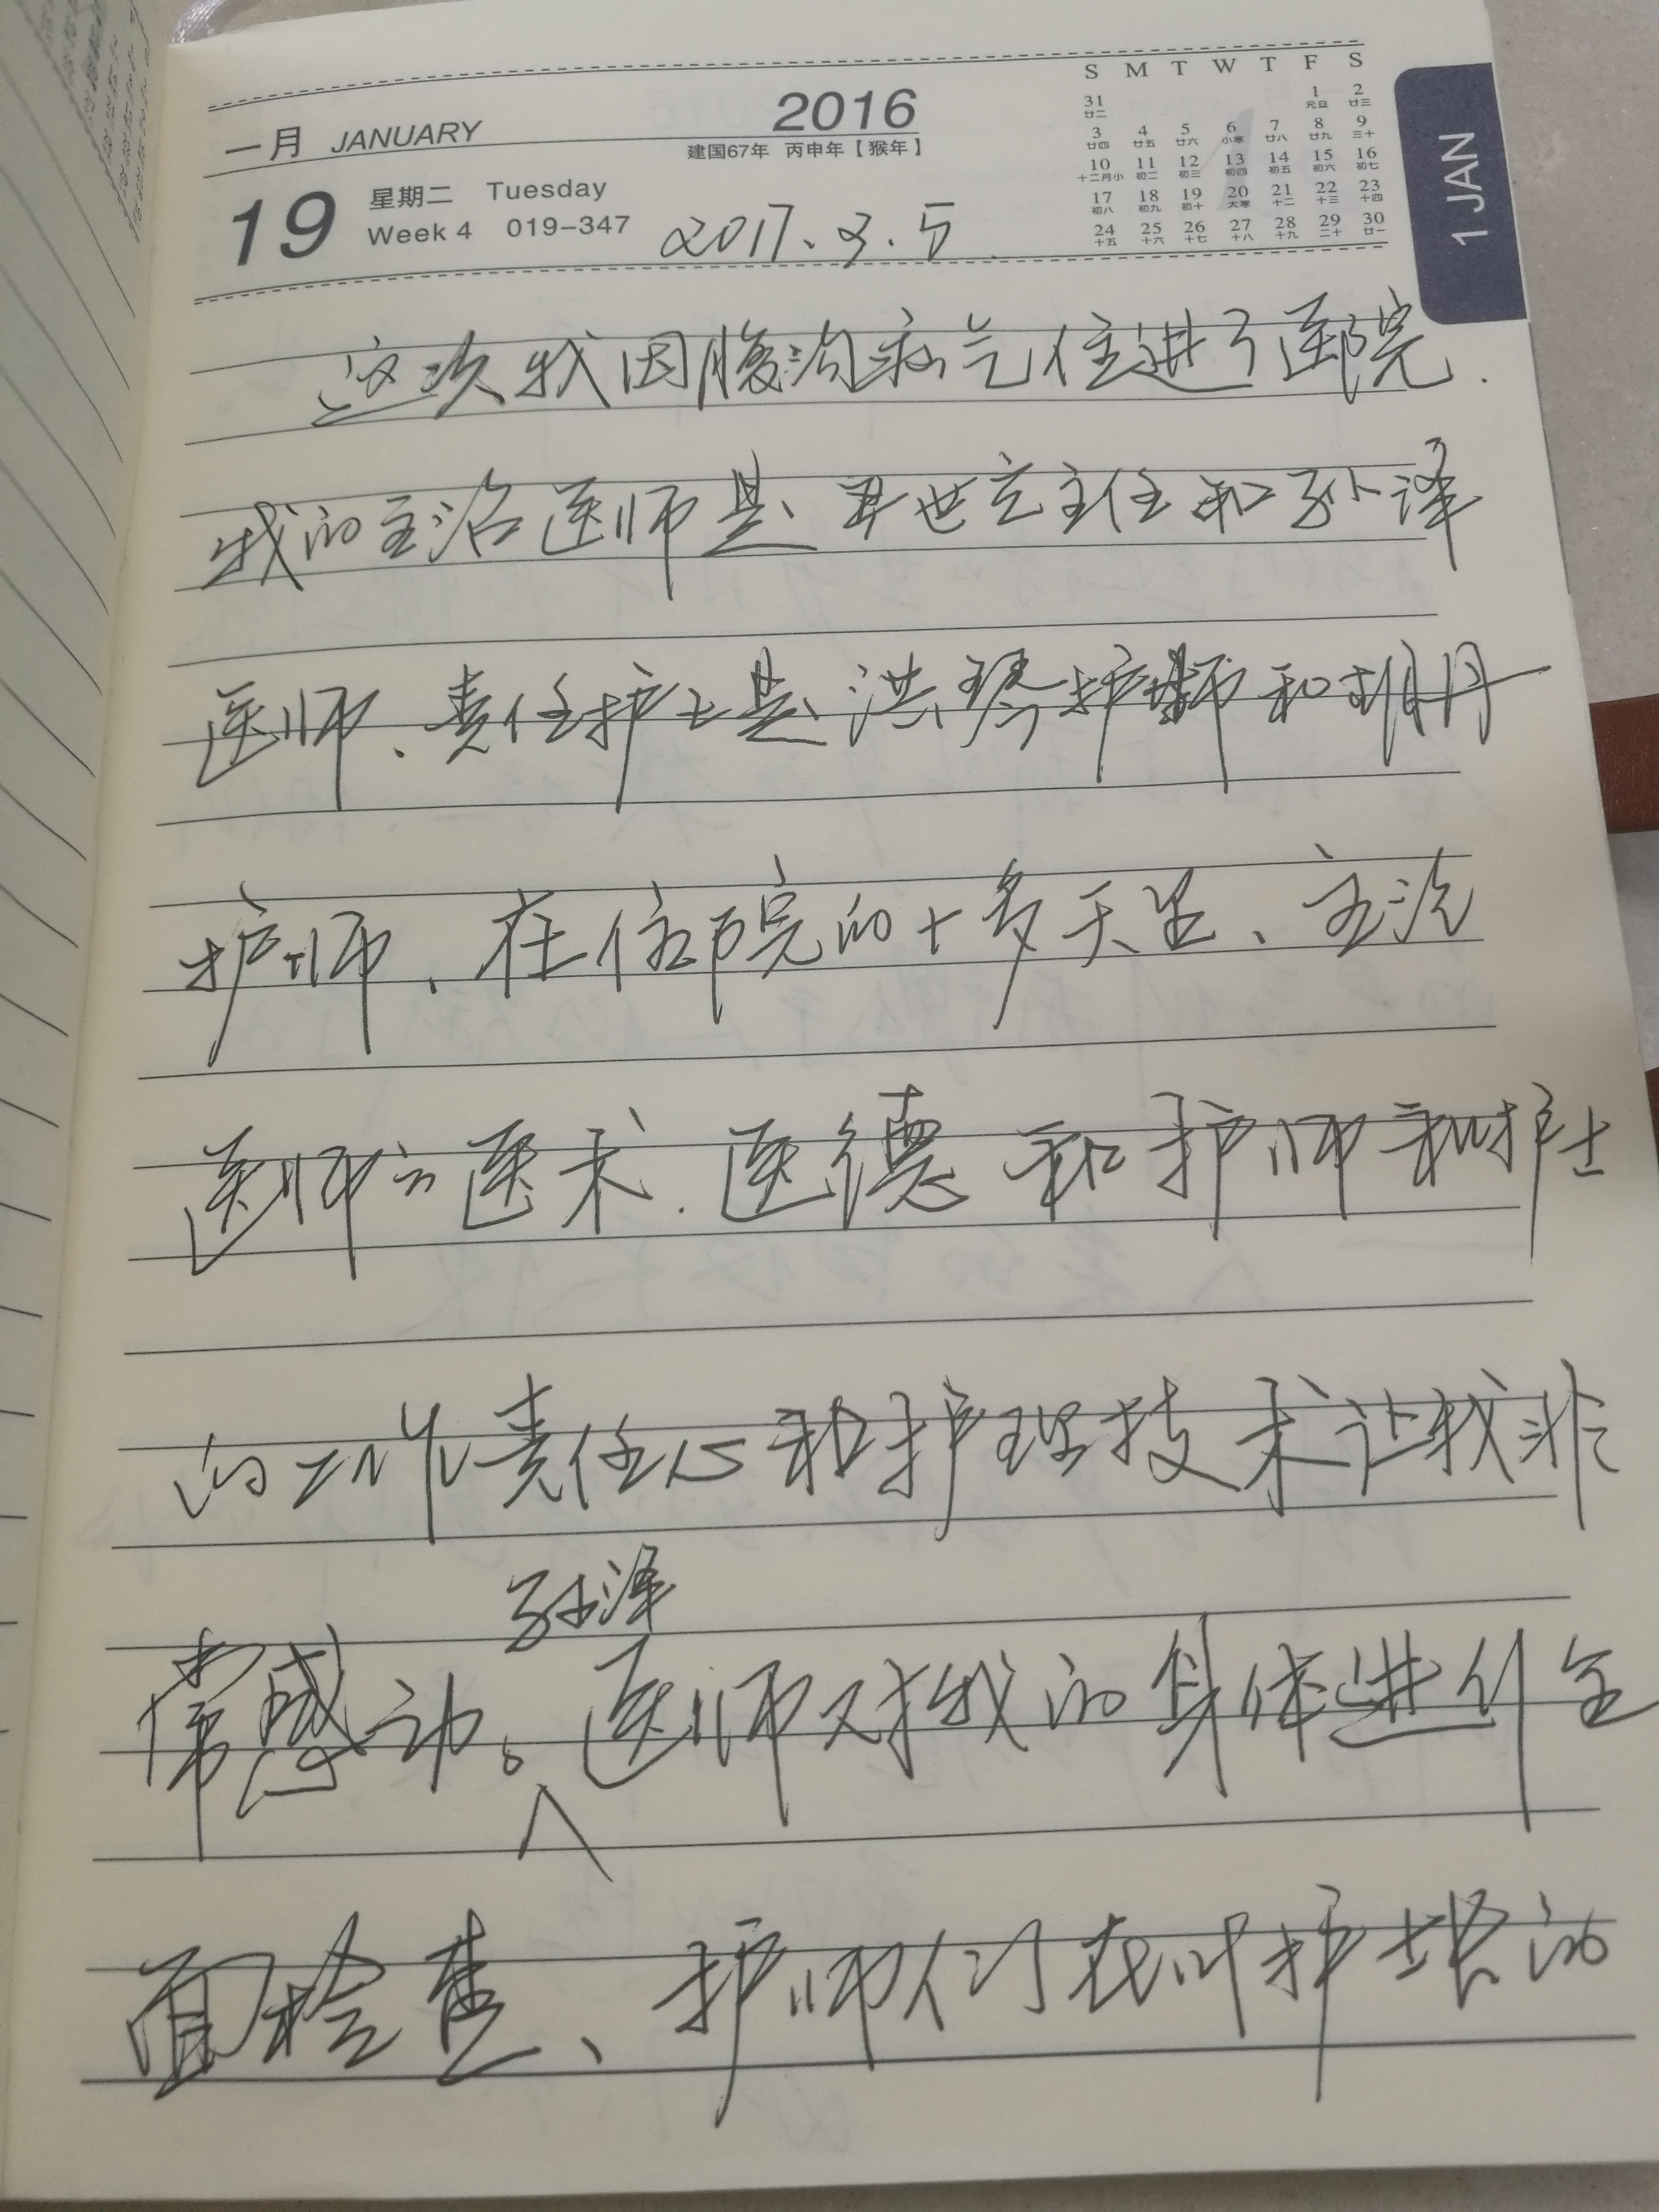 一月 JANUARY
2016
建国67年 丙申年【猴年】
19 星期二 Tuesday
Week 4 019-347
2017.3.5
S M T W T F S
31 1 2
廿二 元旦 廿三
3 4 5 6 7 8 9
廿四 廿五 廿六 小寒 廿八 廿九 三十
10 11 12 13 14 15 16
十二月小 初二 初三 初四 初五 初六 初七
17 18 19 20 21 22 23
初八 初九 初十 大寒 十二 十三 十四
24 25 26 27 28 29 30
十五 十六 十七 十八 十九 二十 廿一
1 JAN
这次我因腹沟疝气住进了医院.
我的主治医师是 世 主任和孙泽
医师、责任护士是洪琴护师和胡丹
护师、在住院的十多天里、主治
医师的医术.医德和护师和护士
的工作责任心和护理技术让我非
孙泽
常感动。医师对我的身体进行全
面检查、护师们在 护 的